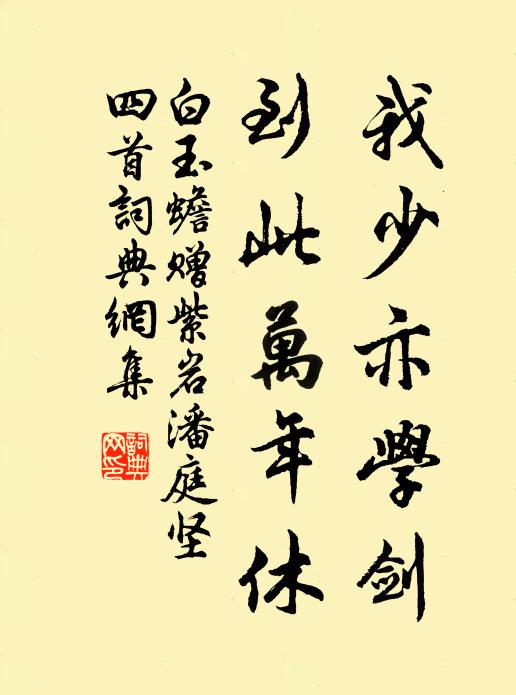 我少亦學劍
到此萬年休
白玉蟾赠紫岩潘庭坚
四首詞典網集
詞典網印